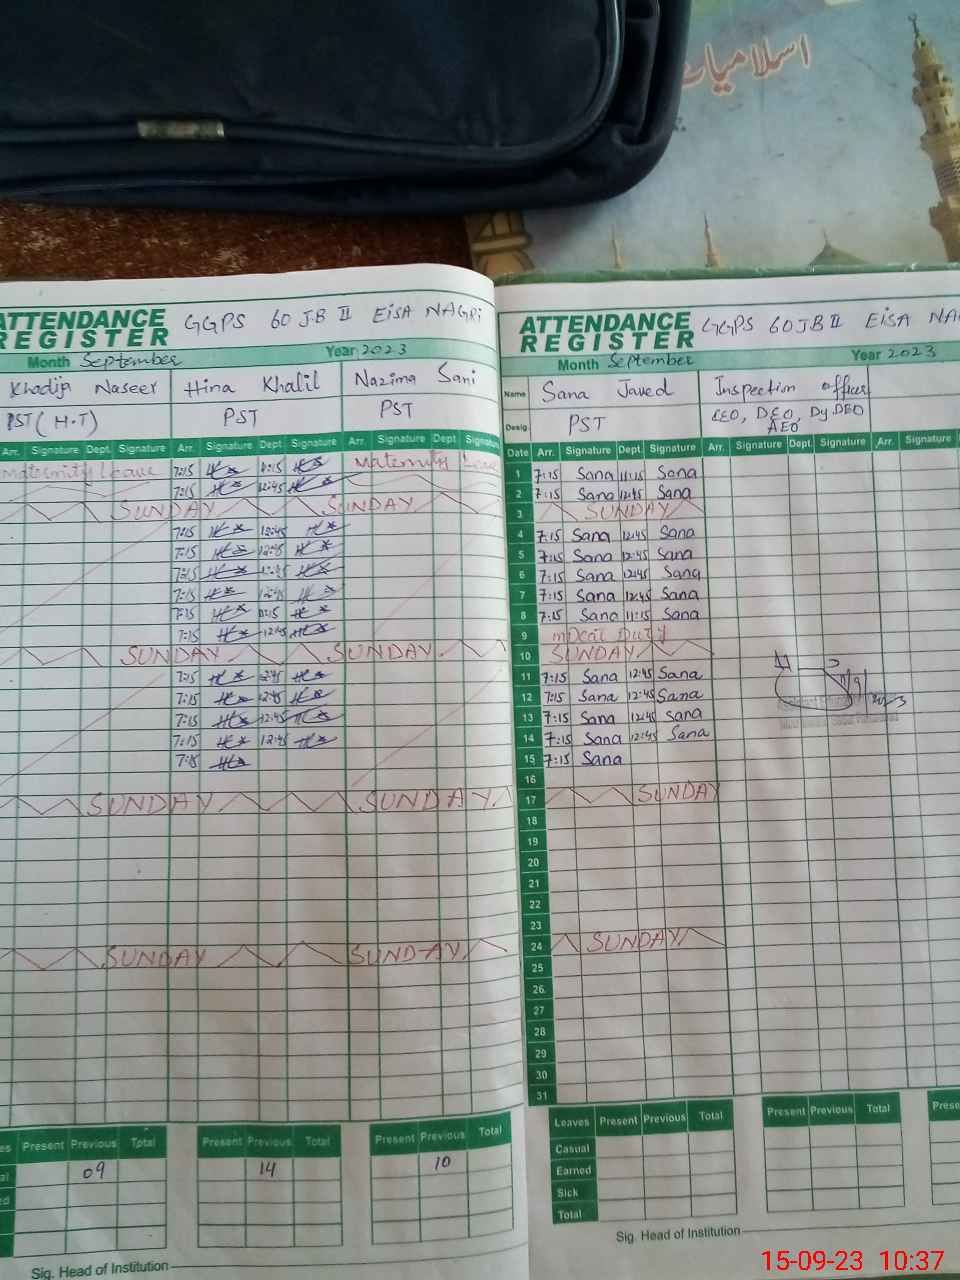 اسلامیات
ATTENDANCE REGISTER GGPS 60 JB II EISA NAGRI
Month September Year 2023
Khadija Naseer Hina Khalil Nazima Sani
PST (H.T) PST PST
Arr. Signature Dept. Signature Arr. Signature Dept. Signature Arr. Signature Dept. Signature
Maternity Leave 7:15 11:15 Maternity Leave
7:15 12:45
SUNDAY SUNDAY
7:15 12:45
7:15 12:45
7:15 12:45
7:15 12:45
7:15 11:15
7:15 12:45
SUNDAY SUNDAY
7:15 12:45
7:15 12:45
7:15 12:45
7:15 12:45
7:15
SUNDAY SUNDAY
SUNDAY SUNDAY
Present Previous Total Present Previous Total Present Previous Total
09 14 10
Sig. Head of Institution
ATTENDANCE REGISTER GGPS 60 JB II EISA NA
Month September Year 2023
Name Sana Javed Inspection officer
Desig. PST CEO, DEO, Dy.DEO
AEO
Date Arr. Signature Dept. Signature Arr. Signature Dept. Signature Arr. Signature
1 7:15 Sana 11:15 Sana
2 7:15 Sana 12:45 Sana
3 SUNDAY
4 7:15 Sana 12:45 Sana
5 7:15 Sana 12:45 Sana
6 7:15 Sana 12:45 Sana
7 7:15 Sana 12:45 Sana
8 7:15 Sana 11:15 Sana
9 Duty
10 SUNDAY
11 7:15 Sana 12:45 Sana
12 7:15 Sana 12:45 Sana
13 7:15 Sana 12:45 Sana
14 7:15 Sana 12:45 Sana
15 7:15 Sana
16
17 SUNDAY
18
19
20
21
22
23
24 SUNDAY
25
26
27
28
29
30
31
Leaves Present Previous Total Present Previous Total Prese
Casual
Earned
Sick
Total
Sig. Head of Institution
15-09-23 10:37